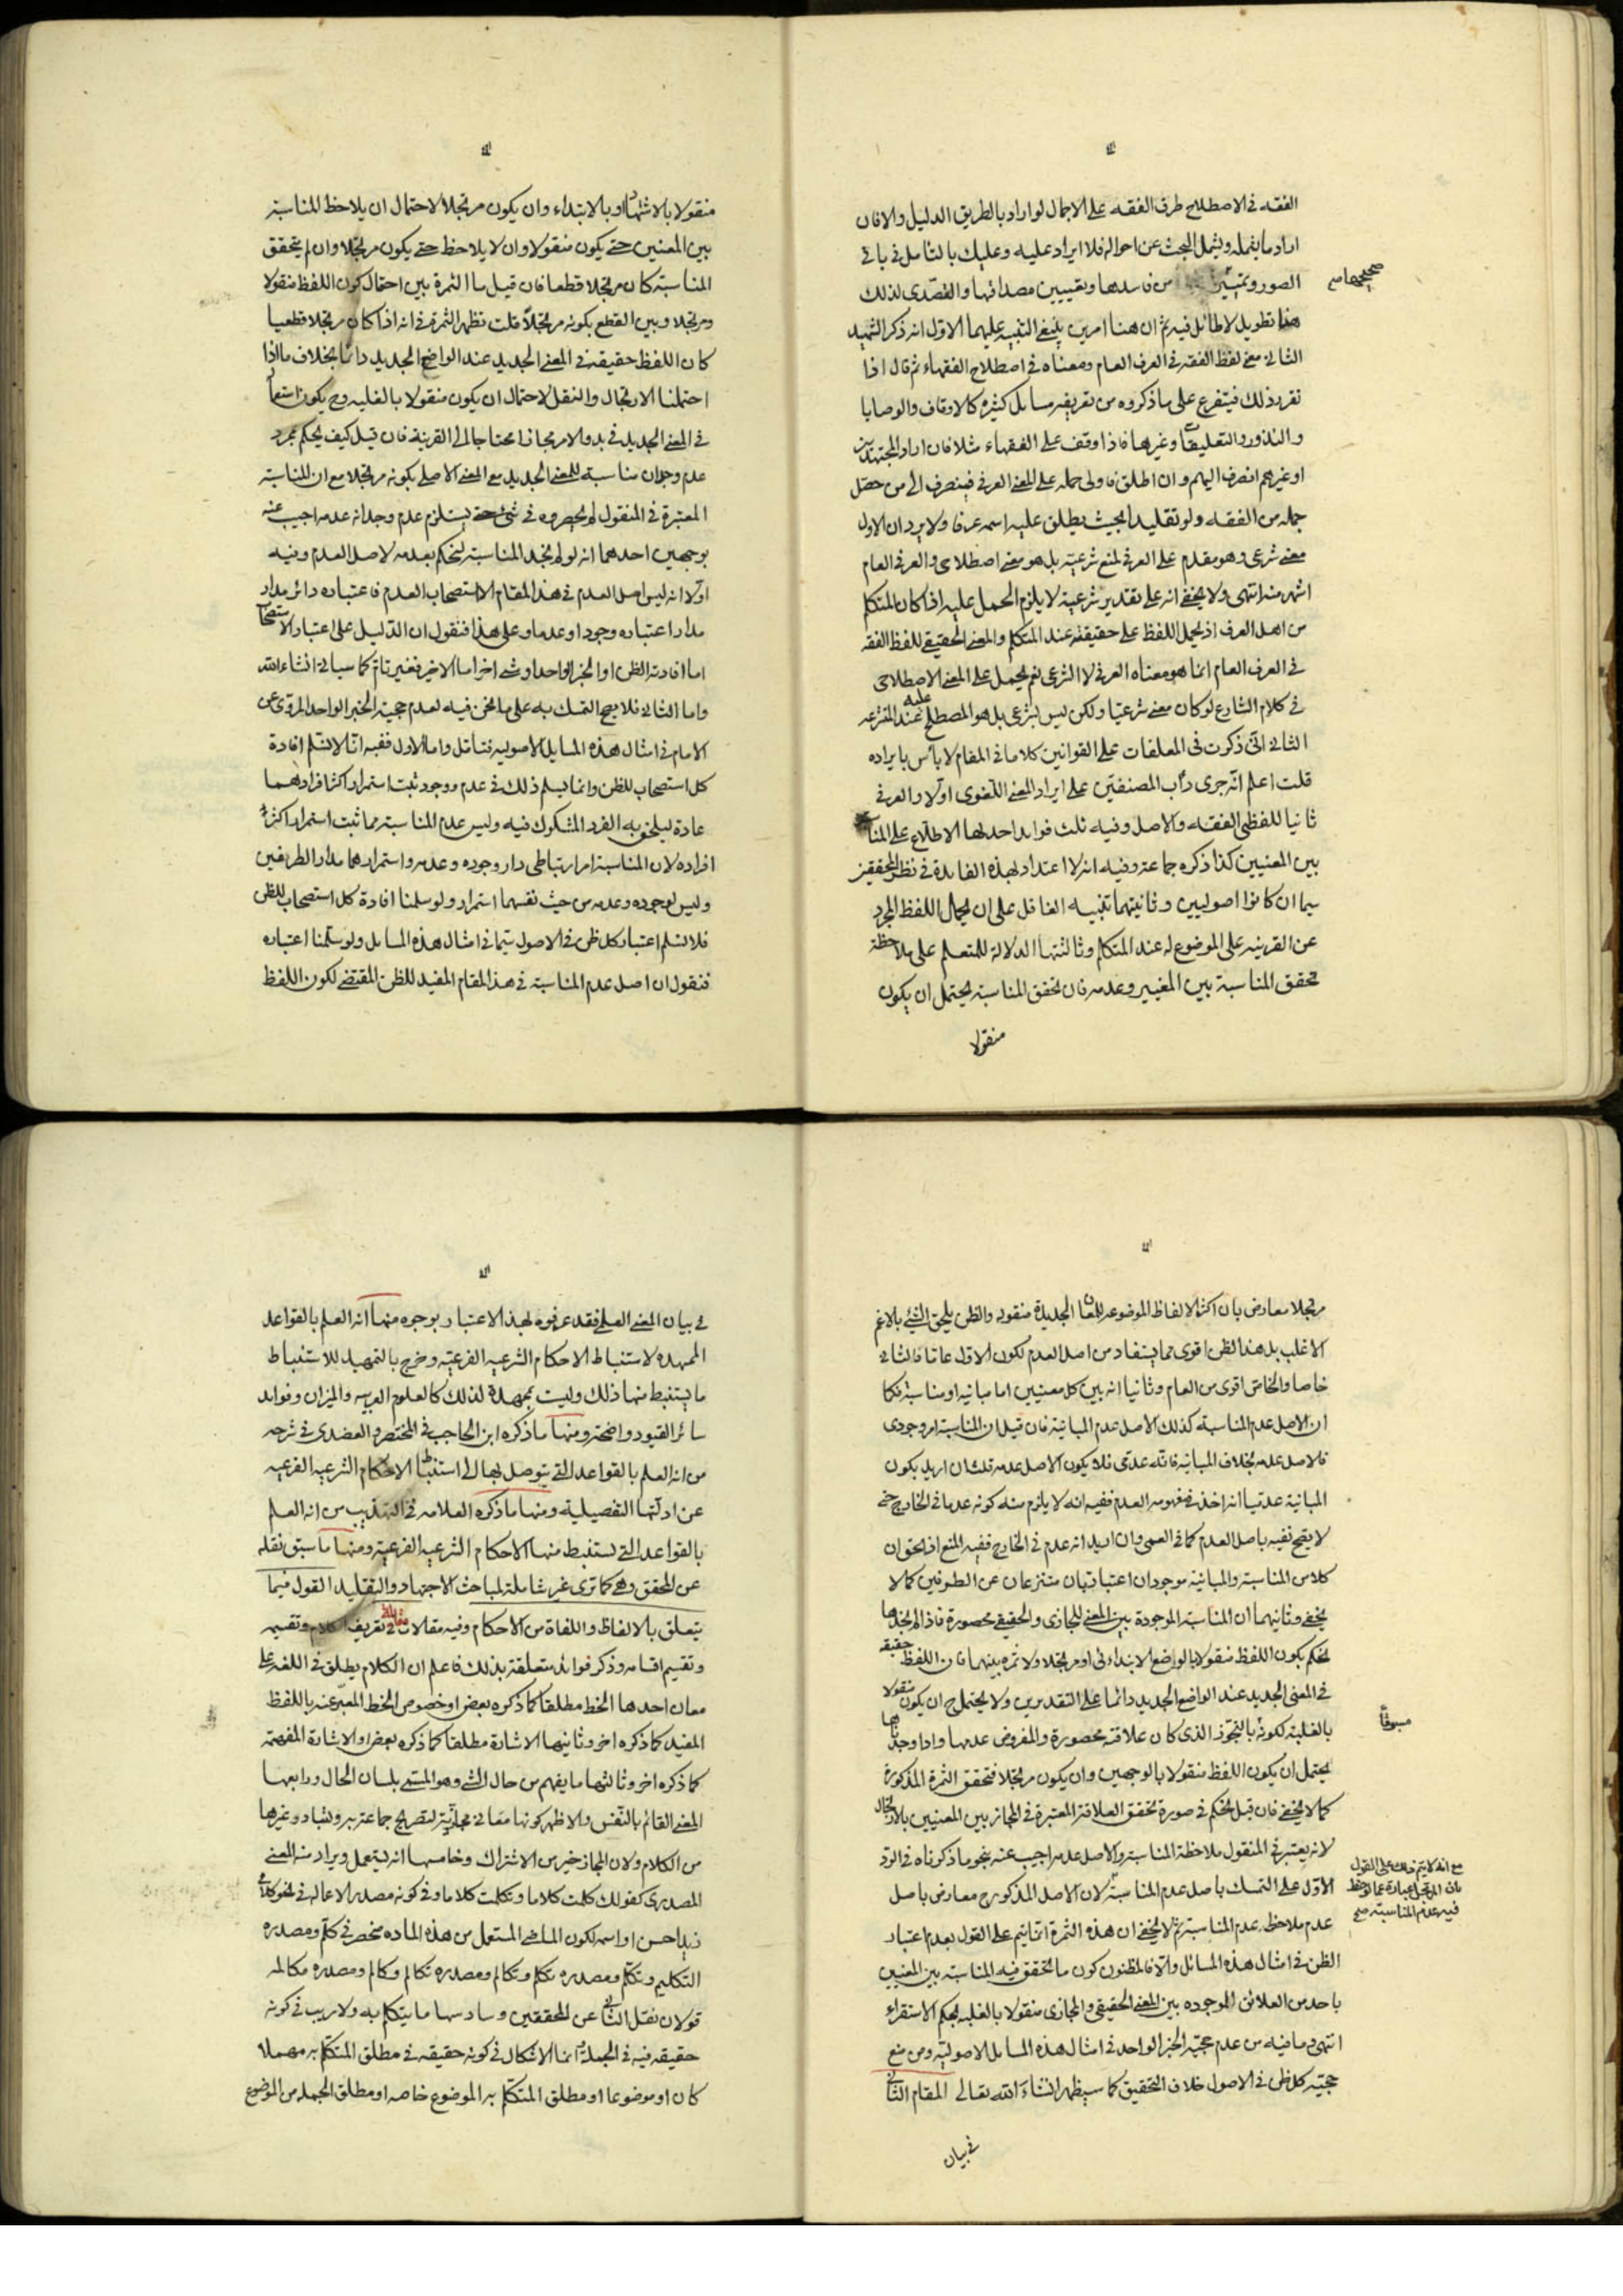 الفقه في الاصطلاح طرف الفقه على الاجمال لو اراد بالطريق الدليل والا فان
اراد ما يشمله ويشمل البحث عن احواله فلا ايراد عليه وعليك بالتامل في باقي
الصور وتمييز من فاسدها وتعيين مصداقها والتصدى لذلك
صحيحها صح
هنا تطويل لا طائل فيه ثم ان هنا امرين ينبغي التنبيه عليهما الاول انه ذكر الشهيد
الثاني معنى لفظ الفقه في العرف العام ومعناه في اصطلاح الفقهاء ثم قال اذا
تقرر ذلك فيتفرع على ما ذكروه من تعريفه مسائل كثيرة كالاوقاف والوصايا
والنذور والتعليقات وغيرها فاذا وقف على الفقهاء مثلا فان اراد المجتهدين
او غيرهم انصرف اليهم وان اطلق فاولى حمله على المعنى العرفي فينصرف الى من حصّل
جملة من الفقه ولو تقليدا بحيث يطلق عليه اسمه عرفا ولا يرد ان الاول
معنى شرعى وهو مقدم على العرفي لمنع شرعيته بل هو معنى اصطلاحى والعرفي العام
اشهر منه انتهى ولا يخفى انه على تقدير شرعيته لا يلزم الحمل عليه اذا كان المتكلم
من اهل العرف اذ يحمل اللفظ على حقيقته عند المتكلم والمعنى الحقيقي للفظ الفقه
في العرف العام انما هو معناه العرفي لا الشرعى نعم يحمل على المعنى الاصطلاحى
في كلام الشارع لو كان معنى شرعيا ولكن ليس بشرعى بل هو المصطلح عليه عند المتشرعه
الثاني انّى ذكرت في المعلقات على القوانين كلاما في المقام لا بأس بايراده
قلت اعلم انّه جرى دأب المصنفين على ايراد المعنى اللغوى اولا والعرفي
ثانيا للفظى الفقه والاصل وفيه ثلث فوايد احدها الاطلاع على المناسبة
بين المعنيين كذا ذكره جماعة وفيه انه لا اعتداد بهذه الفايدة في نظر المحققين
سيما ان كانوا اصوليين وثانيتهما تنبيه الغافل على ان يحمل اللفظ المجرد
عن القرينه على الموضوع له عند المتكلم وثالثتها الدلالة للمتعلم على ملاحظة
تحقق المناسبة بين المعنيين وعدمه فان تحقق المناسبة يحتمل ان يكون
منقولا
منقولا بالاشتهار او بالابتداء وان يكون مرتجلا لاحتمال ان يلاحظ المناسبة
بين المعنيين حتى يكون منقولا وان لا يلاحظ حتى يكون مرتجلا وان لم يتحقق
المناسبة كان مرتجلا قطعا فان قيل ما الثمرة بين احتمال كون اللفظ منقولا
ومرتجلا وبين القطع بكونه مرتجلاً قلت تظهر الثمرة في انه اذا كان مرتجلا قطعيا
كان اللفظ حقيقة في المعنى الجديد عند الواضع الجديد دائما بخلاف ما اذا
احتملنا الارتجال والنقل لاحتمال ان يكون منقولا بالغلبه وح يكون استعماله
في المعنى الجديد في بدو الامر مجازا محتاجا الى القرينة فان قيل كيف يحكم بمجرد
عدم وجدان مناسبة للمعنى الجديد مع المعنى الاصلى بكونه مرتجلا مع ان المناسبة
المعتبرة في المنقول لم يحصروه في شئ حتى يستلزم عدم وجدانه عدمه اجيب عنه
بوجهين احدهما انه لو لم نجد المناسبة لنحكم بعدمه لاصل العدم وفيه
اولا انه ليس اصل العدم في هذا المقام الا استصحاب العدم فاعتباره دائر مدار
مدار اعتباره وجودا وعدما وعلى هذا فنقول ان الدليل على اعتبار الاستصحاب
اما افادته الظن او الخبر الواحد او شئ اخر اما الاخير فغير تام كما سياتي انشاء الله
واما الثاني فلا يصح التمسك به على ما نحن فيه لعدم حجية الخبر الواحد المروى عن
الامام في امثال هذه المسايل الاصوليه فتامل واما الاول ففيه انّا لا نسلم افادة
كل استصحاب للظن وانما يسلم ذلك في عدم ووجود ثبت استمرار اكثر افرادهما
عادة ليلحق به الفرد المشكوك فيه وليس عدم المناسبة مما ثبت استمرار اكثر
افراده لان المناسبة امر ارتباطى دار وجوده وعدمه واستمرارهما مدار الطرفين
وليس لوجوده وعدمه من حيث نفسهما استمرار ولو سلمنا افادة كل استصحاب للظن
فلا نسلم اعتبار كل ظن في الاصول سيّما في امثال هذه المسائل ولو سلّمنا اعتباره
فنقول ان اصل عدم المناسبة في هذا المقام المفيد للظن المقتضى لكون اللفظ
مرتجلا معارض بان اكثر الالفاظ الموضوعه للمعان الجديدة منقوله والظن يلحق الشئ بالاعم
الاغلب بل هذا الظن اقوى مما يستفاد من اصل العدم لكون الاول عاما والثاني
خاصا والخاص اقوى من العام وثانيا انه بين كل معنيين اما مباينه او مناسبة فكما
ان الاصل عدم المناسبة كذلك الاصل عدم المباينة فان قيل ان المناسبة امر وجودى
فالاصل عدمه بخلاف المباينه فانه عدمى فلا يكون الاصل عدمه قلت ان اريد بكون
المباينة عدميا انه اخذ في مفهومه العدم ففيه انه لا يلزم منه كونه عدما في الخارج حتى
لا يصح نفيه باصل العدم كما في العمى وان اريد انه عدم في الخارج ففيه المنع اذ الحق ان
كلا من المناسبة والمباينة موجودان اعتباريان منتزعان عن الطرفين كما لا
يخفى وثانيهما ان المناسبة الموجودة بين المعنى المجازى والحقيقى محصورة فاذا لم نجدها
نحكم بكون اللفظ منقولا بالوضع الابتدائى او مرتجلا ولا ثمره بينهما فان اللفظ حقيقة
في المعنى الجديد عند الواضع الجديد دائما على التقديرين ولا يحتمل ح ان يكون منقولا
بالغلبة لكونه بالتجوّز الذى كان علاقته محصورة والمفروض عدمها واذا وجدناها
مسبوقاً
يحتمل ان يكون اللفظ منقولا بالوجهين وان يكون مرتجلا فتحقق الثمرة المذكورة
كما لا يخفى فان قيل نحكم في صورة تحقق العلاقة المعتبرة في المجاز بين المعنيين بالارتجال
لانه يعتبر في المنقول ملاحظة المناسبة والاصل عدمه اجيب عنه بنحو ما ذكرناه في الرد
الاول على التمسك باصل عدم المناسبة لان الاصل المذكور ح معارض باصل
مع انه لا يتم ذلك على القول
بان المرتجل عبارة عما لوحظ
فيه عدم المناسبة صح
عدم ملاحظة عدم المناسبة ثم لا يخفى ان هذه الثمرة انما يتم على القول بعدم اعتبار
الظن في امثال هذه المسائل والا فالمظنون كون ما تحقق فيه المناسبة بين المعنيين
باحد من العلائق الموجوده بين المعنى الحقيقى والمجازى منقولا بالغلبه بحكم الاستقراء
انتهى وما فيه من عدم حجية الخبر الواحد في امثال هذه المسايل الاصولية ومن منع
حجية كل ظن في الاصول خلاف التحقيق كما سيظهر انشاء الله تعالى المقام الثاني
في بيان
في بيان المعنى العلمى فقد عرفوه لهذا الاعتبار بوجوه منها انه العلم بالقواعد
الممهده لاستنباط الاحكام الشرعيه الفرعية وخرج بالتمهيد للاستنباط
ما يستنبط منها ذلك وليست بممهدة لذلك كالعلوم العربيه والميزان وفوائد
سائر القيود واضحة ومنها ما ذكره ابن الحاجب في المختصر والعضدى في شرحه
من انه العلم بالقواعد التى يتوصل بها الى استنباط الاحكام الشرعيه الفرعيه
عن ادلتها التفصيلية ومنها ما ذكره العلامه في التهذيب من انه العلم
بالقواعد التى تستنبط منها الاحكام الشرعيه الفرعية ومنها ما سبق نقله
عن المحقق وهى كما ترى غير شاملة لمباحث الاجتهاد والتقليد القول فيما
يتعلق بالالفاظ واللغاة من الاحكام وفيه مقالات مقالة في تعريف الكلام وتقسيمه
وتقسيم اقسامه وذكر فوائد متعلقة بذلك فاعلم ان الكلام يطلق في اللغة على
معان احدها الخط مطلقا كما ذكره بعض او خصوص الخط المعبر عنه باللفظ
المفيد كما ذكره اخر وثانيها الاشارة مطلقا كما ذكره بعض او الاشارة المفهمة
كما ذكره اخر وثالثها ما يفهم من حال الشئ وهو المسمى بلسان الحال ورابعها
المعنى القائم بالنّفس والاظهر كونها معانى مجازيّة لتصريح جماعة به وتبادر غيرها
من الكلام ولان المجاز خير من الاشتراك وخامسها انه يستعمل ويراد منه المعنى
المصدرى كقولك كلمت كلاما وتكلمت كلاما وفي كونه مصدر الاعماله في نحو كلامى
زيدا حسن او اسمه لكون الماضى المستعمل من هذه الماده منحصر في كلّم ومصدره
التكليم وتكلّم ومصدره تكلم وتكالم ومصدره تكالم وكالم ومصدره مكالمه
قولان نقل الثاني عن المحققين وسادسها ما يتكلم به ولا ريب في كونه
حقيقه فيه في الجملة انما الاشكال في كونه حقيقه في مطلق المتكلم به مهملا
كان او موضوعا او مطلق المتكلّم به الموضوع خاصه او مطلق الجمله من الموضوع